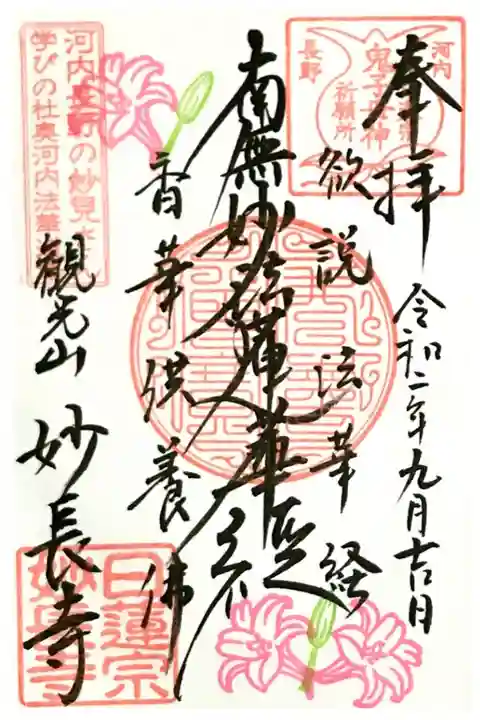 奉拝
令和二年九月吉日
河内
長野
鬼子母神
祈願所
欲説法華経
南無妙法蓮華経
香華供養佛
河内長野の妙見さ
学びの杜奥河内法華
観光山
妙長寺
日蓮宗
妙長寺